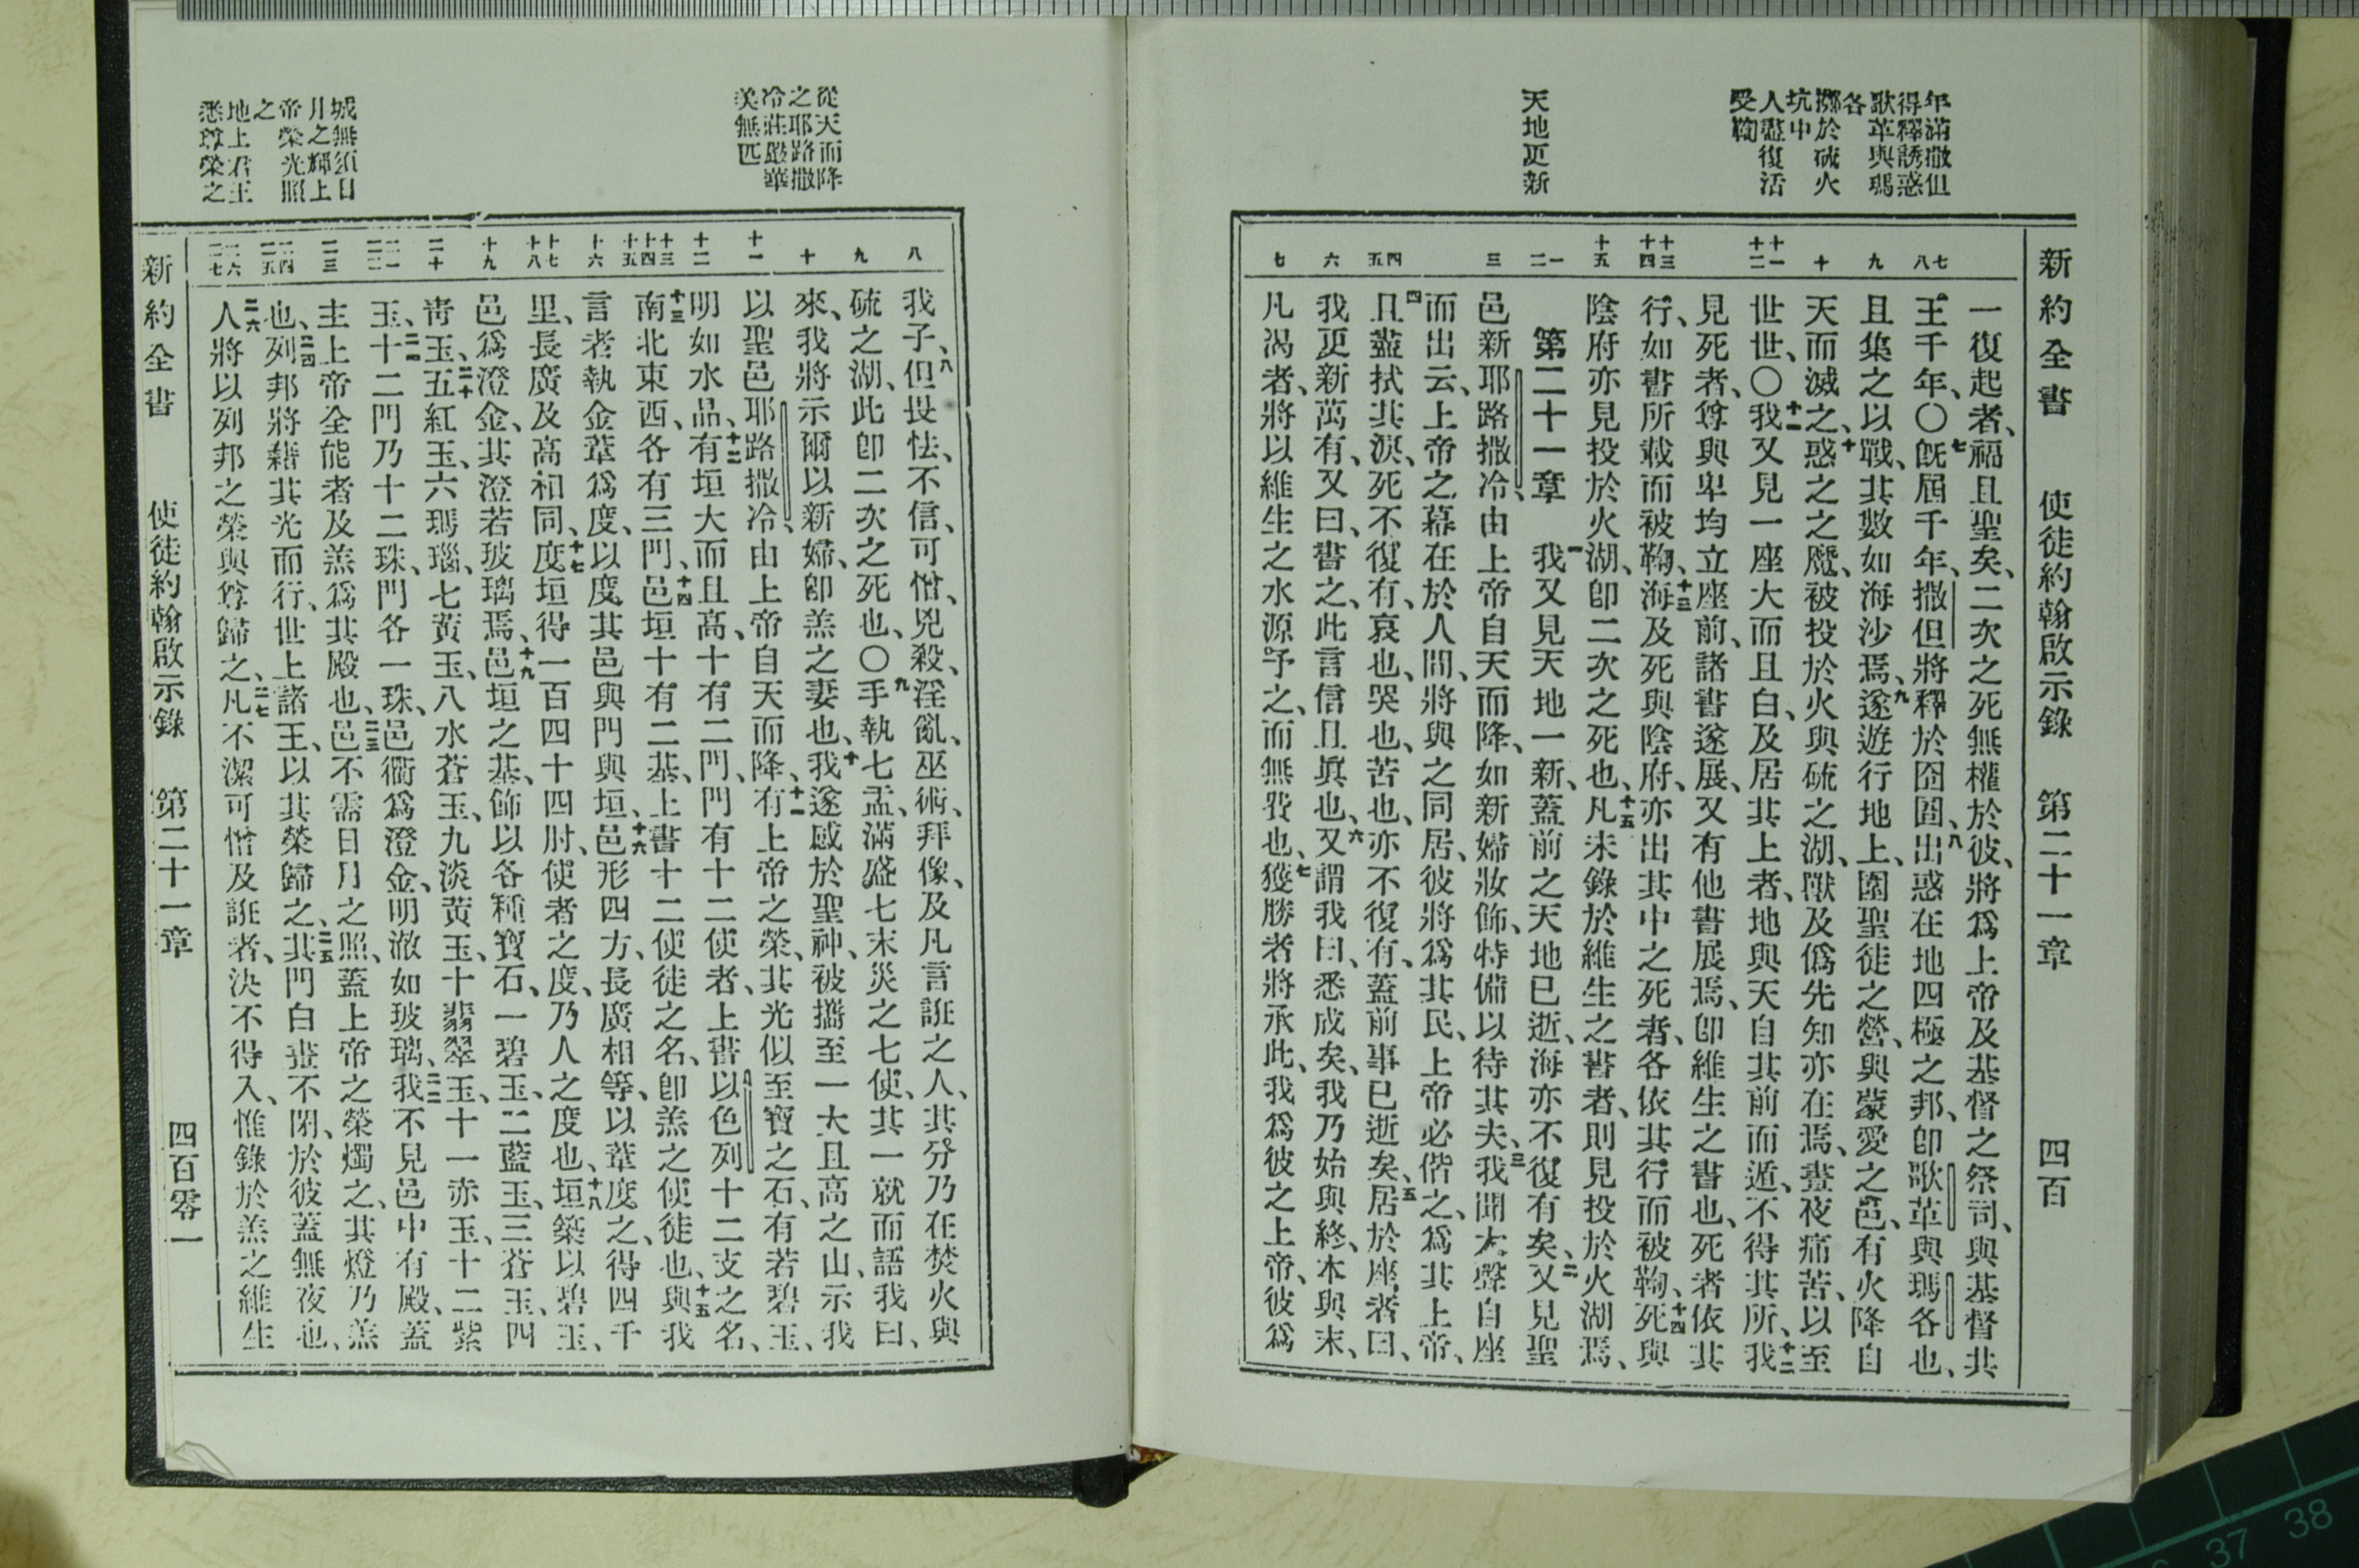 新約全書 使徒約翰啟示錄 第二十一章 四百
年滿撒但
得釋誘惑
歌革與瑪
各
擲於硫火
坑中
人盡復活
受鞫
天地更新
七
八
九
十
十一
十二
十三
十四
十五
一
二
三
四
五
六
七
一復起者、福且聖矣、二次之死無權於彼、將爲上帝及基督之祭司、與基督共
王千年、〇七旣屆千年、撒但將釋於囹圄、八出惑在地四極之邦、卽歌革與瑪各也、
且集之以戰、其數如海沙焉、九遂遊行地上、圍聖徒之營、與蒙愛之邑、有火降自
天而滅之、十惑之之魔、被投於火與硫之湖、獸及僞先知亦在焉、晝夜痛苦、以至
世世、〇十一我又見一座大而且白、及居其上者、地與天自其前而遁、不得其所、十二我
見死者、尊與卑均立座前、諸書遂展、又有他書展焉、卽維生之書也、死者依其
行、如書所載而被鞫、十三海及死與陰府、亦出其中之死者、各依其行而被鞫、十四死與
陰府亦見投於火湖、卽二次之死也、十五凡未錄於維生之書者、則見投於火湖焉、
第二十一章 一我又見天地一新、蓋前之天地已逝、海亦不復有矣、二又見聖
邑新耶路撒冷、由上帝自天而降、如新婦妝飾、特備以待其夫、三我聞大聲自座
而出云、上帝之幕在於人間、將與之同居、彼將爲其民、上帝必偕之、爲其上帝、
四且蓋拭其淚、死不復有、哀也、哭也、苦也、亦不復有、蓋前事已逝矣、五居於座者曰、
我更新萬有、又曰、書之、此言信且眞也、六又謂我曰、悉成矣、我乃始與終、本與末、
凡渴者、將以維生之水源予之、而無費也、七獲勝者將承此、我爲彼之上帝、彼爲
從天而降
之耶路撒
冷莊嚴華
美無匹
城無須日
月之輝上
帝榮光照
之
地上君王
悉尊榮之
八
九
十
十一
十二
十三
十四
十五
十六
十七
十八
十九
二十
二一
二二
二三
二四
二五
二六
二七
我子、八但畏怯、不信、可憎、兇殺、淫亂、巫術、拜像、及凡言誑之人、其分乃在焚火與
硫之湖、此卽二次之死也、〇九手執七盂、滿盛七末災之七使、其一就而語我曰、
來、我將示爾以新婦、卽羔之妻也、十我遂感於聖神、被攜至一大且高之山、示我
以聖邑耶路撒冷、由上帝自天而降、十一有上帝之榮、其光似至寶之石、有若碧玉、
明如水晶、十二有垣大而且高、十有二門、門有十二使者、上書以色列十二支之名、
十三南北東西、各有三門、十四邑垣十有二基、上書十二使徒之名、卽羔之使徒也、十五與我
言者執金葦爲度、以度其邑與門與垣、十六邑形四方、長廣相等、以葦度之、得四千
里、長廣及高相同、十七度垣得一百四十四肘、使者之度、乃人之度也、十八垣築以碧玉、
邑爲澄金、其澄若玻璃焉、十九邑垣之基、飾以各種寶石、一碧玉、二藍玉、三蒼玉、四
靑玉、二十五紅玉、六瑪瑙、七黃玉、八水蒼玉、九淡黃玉、十翡翠玉、十一赤玉、十二紫
玉、二一十二門乃十二珠、門各一珠、邑衢爲澄金、明澈如玻璃、二二我不見邑中有殿、蓋
主上帝全能者及羔爲其殿也、二三邑不需日月之照、蓋上帝之榮燭之、其燈乃羔
也、二四列邦將藉其光而行、世上諸王、以其榮歸之、二五其門白晝不閉、於彼蓋無夜也、
二六人將以列邦之榮與尊歸之、二七凡不潔可憎及誑者、決不得入、惟錄於羔之維生
新約全書 使徒約翰啟示錄 第二十一章 四百零一
37 38